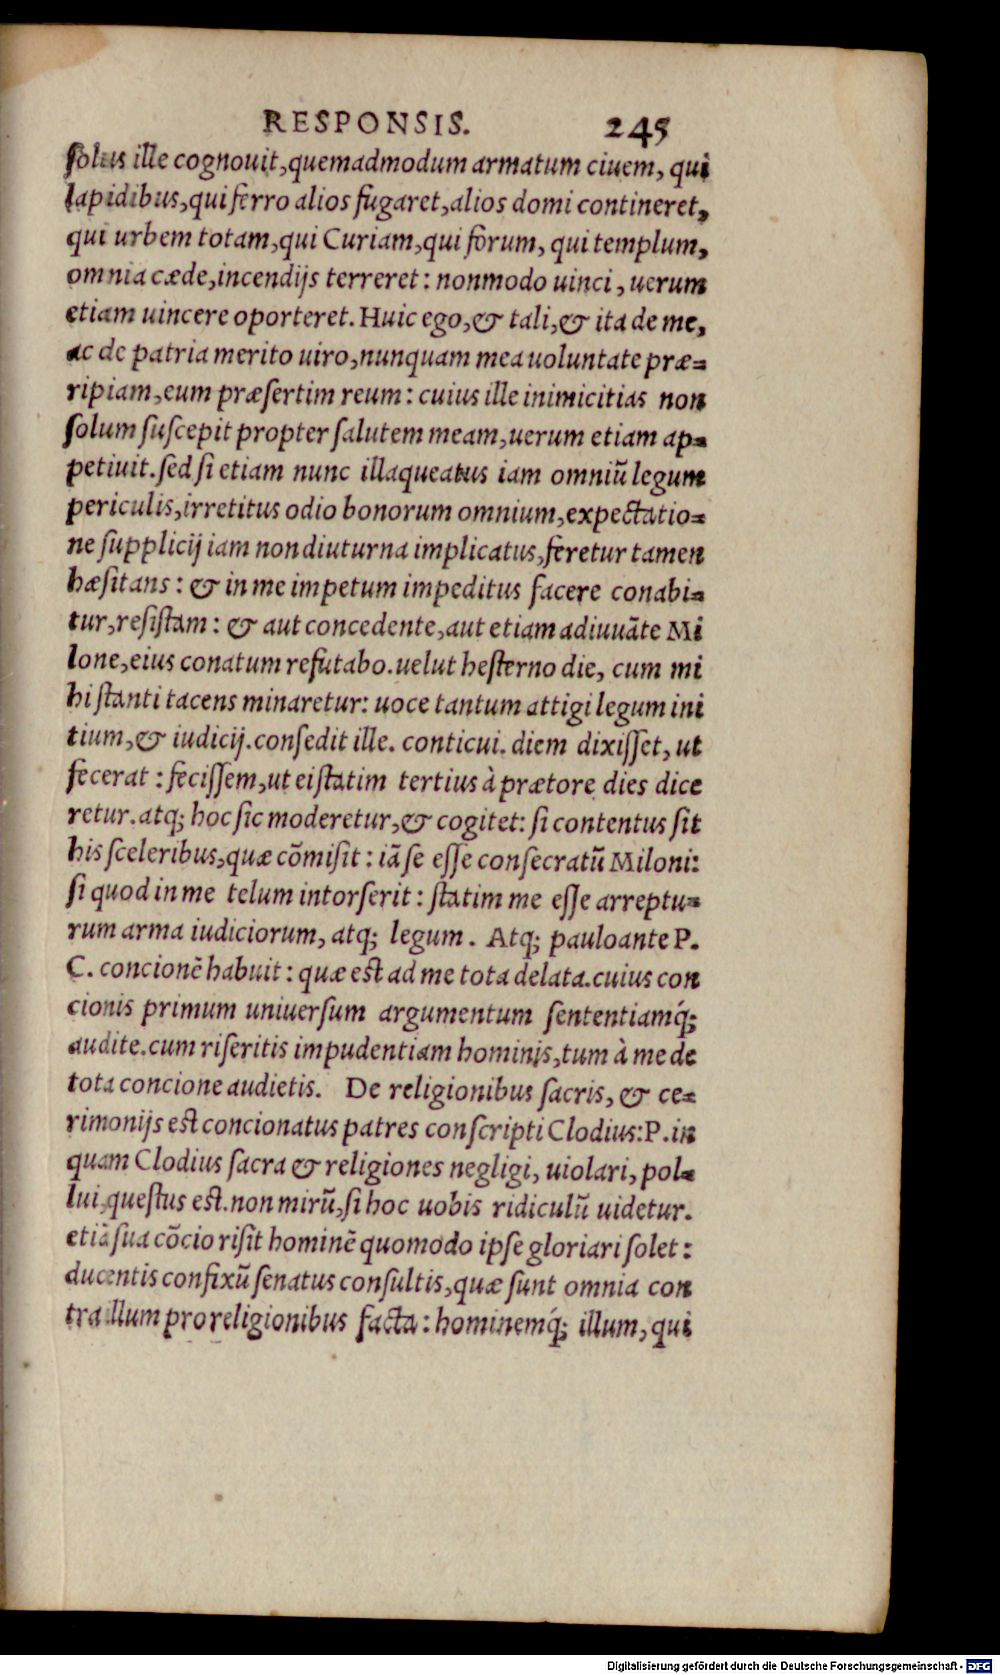 RESPONSIS. 245
ſolus ille cognouit,quemadmodum armatum ciuem, qui
lapidibus,qui ferro alios fugaret,alios domi contineret,
qui urbem totam,qui Curiam,qui forum, qui templum,
omnia cæde,incendijs terreret: nonmodo uinci, uerum
etiam uincere oporteret. Huic ego,& tali,& ita de me,
ac de patria merito uiro,nunquam mea uoluntate præ-
ripiam,eum præſertim reum: cuius ille inimicitias non
ſolum ſuſcepit propter ſalutem meam,uerum etiam ap-
petiuit.ſed ſi etiam nunc illaqueatus iam omniũ legum
periculis,irretitus odio bonorum omnium,expectatio-
ne ſupplicij iam non diuturna implicatus,feretur tamen
hæſitans: & in me impetum impeditus facere conabi-
tur,reſiſtam: & aut concedente,aut etiam adiuuãte Mi
lone,eius conatum refutabo.uelut heſterno die, cum mi
hi ſtanti tacens minaretur: uoce tantum attigi legum ini
tium,& iudicij.conſedit ille. conticui. diem dixiſſet, ut
fecerat: feciſſem,ut ei ſtatim tertius à prætore dies dice
retur.atq; hoc ſic moderetur,& cogitet: ſi contentus ſit
his ſceleribus,quæ cõmiſit: iã ſe eſſe conſecratũ Miloni:
ſi quod in me telum intorſerit: ſtatim me eſſe arreptu-
rum arma iudiciorum, atq; legum. Atq; pauloante P.
C. concionẽ habuit: quæ eſt ad me tota delata.cuius con
cionis primum uniuerſum argumentum ſententiamq́;
audite.cum riſeritis impudentiam hominis,tum à me de
tota concione audietis. De religionibus ſacris, & ce-
rimonijs eſt concionatus patres conſcripti Clodius:P.in
quam Clodius ſacra & religiones negligi, uiolari, pol-
lui,queſtus eſt.non mirũ,ſi hoc uobis ridiculũ uidetur.
etiã ſua cõcio riſit hominẽ quomodo ipſe gloriari ſolet:
ducentis confixũ ſenatus conſultis,quæ ſunt omnia con
tra illum pro religionibus facta: hominemq́; illum, qui
Digitalisierung gefördert durch die Deutsche Forschungsgemeinschaft - DFG